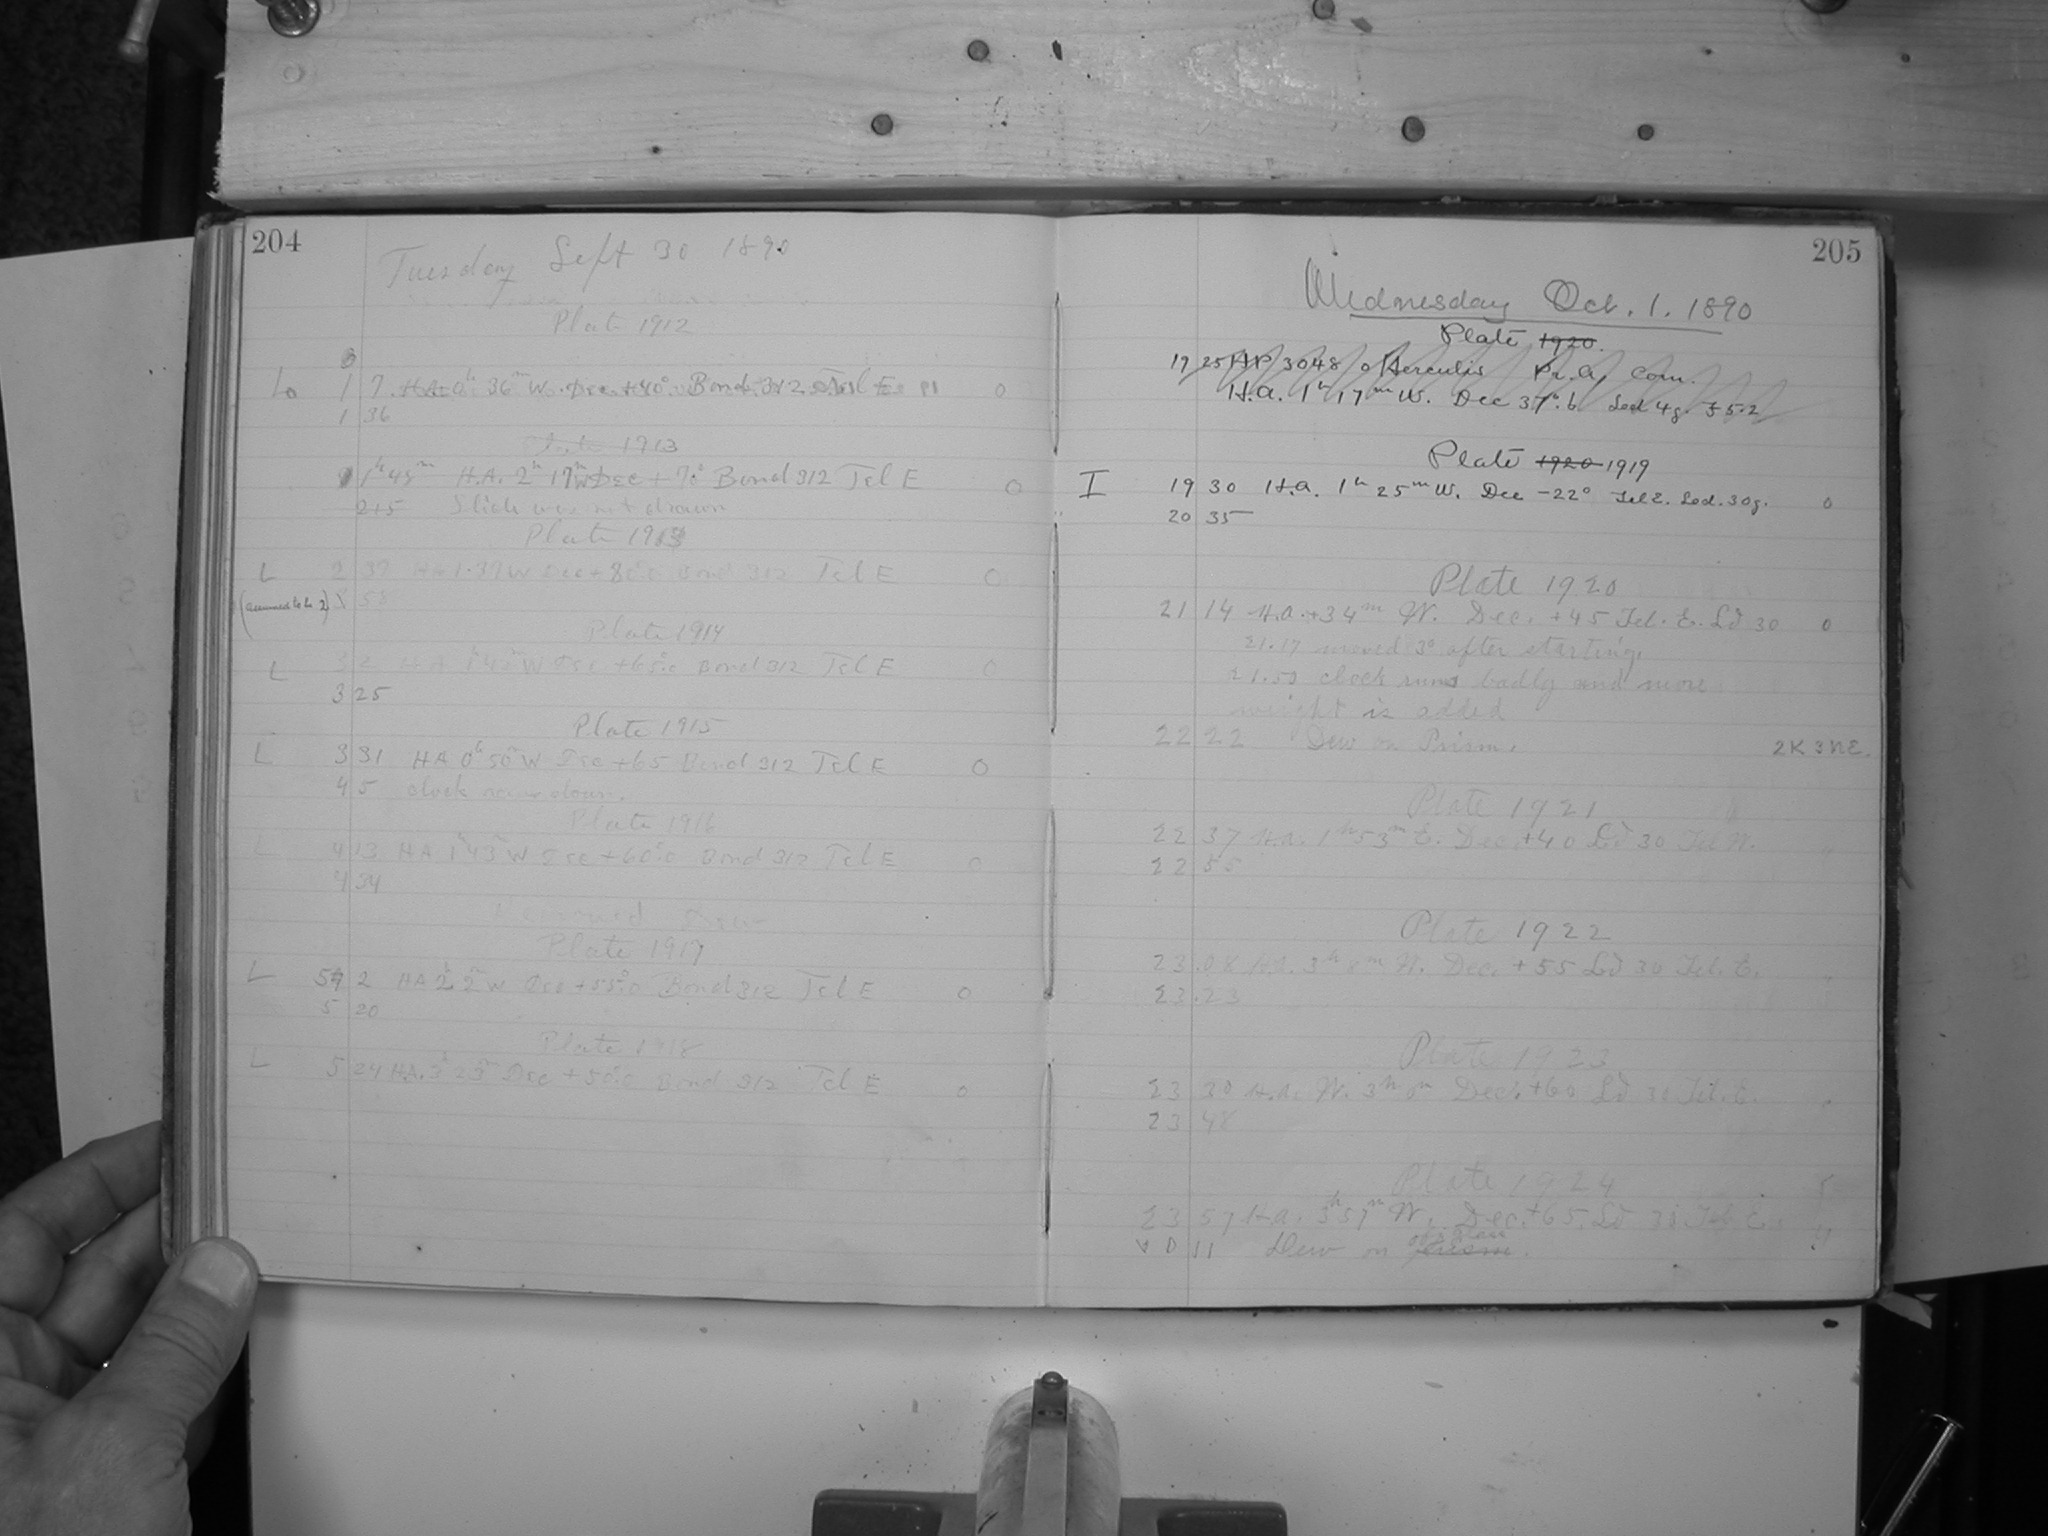 204
Tuesday Sept 30 1890
Plate 1912
1 7 HA 0h 36m W. Dec +40° Bond 312 Tel E 0
1 36
Plate 1913
1h 48m H.A. 2h 17m W Dec + 70° Bond 312 Tel E 0
2+5 Slide was not drawn
Plate 1913
L 2 37 HA 1.37 W Dec + 80°.0 Bond 312 Tel E 0
(assumed to be 2) 58
Plate 1914
L 3 2 HA 1h 42m W Dec +65°.0 Bond 312 Tel E 0
3 25
Plate 1915
L 3 31 HA 0h 50m W Dec +65 Bond 312 Tel E 0
4 5 clock runs down.
Plate 1916
L 4 13 HA 1h 43m W Dec +60°.0 Bond 312 Tel E 0
4 34
Removed Dew
Plate 1917
L 5 2 HA 2h 2m W Dec +55°.0 Bond 312 Tel E 0
5 20
Plate 1918
L 5 24 H.A. 3h 23m Dec +50°.0 Bond 312 Tel E 0
205
Wednesday Oct. 1. 1890
Plate 1920.
19 25 HP 3048 o Herculis Pr. a, Com.
H.a. 1h 17m W. Dec 37°.6 Sed 4g.
Plate 1920 1919
I 19 30 H.a. 1h 25m W. Dec -22° Tel E. Sed. 30g. 0
20 35
Plate 1920
21 14 H.a. +34m W. Dec. +45 Tel. E. Sd 30 0
21.17 moved 3° after starting.
21.50 clock runs badly and more
weight is added
22 22 Dew on Prism. 2K 3NE.
Plate 1921
22 37 H.a. 1h 53m E. Dec +40 Sd 30 Tel W.
22 55
Plate 1922
23.08 H.a. 3h 8m W. Dec. + 55 Sd 30 Tel. E.
23.23
Plate 1923
23 30 H.a. W. 3h 0m Dec. +60 Sd 30 Tel. E.
23 48
Plate 1924
23 57 H.a. 3h 57m W. Dec. +65. Sd 30 Tel. E.
0 11 Dew on prism.